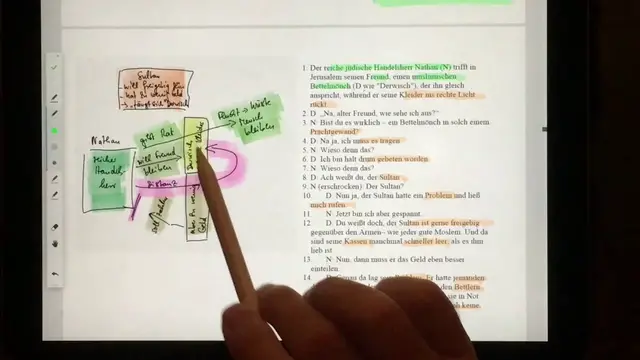 Sultan
will freigebig
Nathan
reicher
Handels-
herr
gibt Rat
will Freund
bleiben
Distanz
Derwisch
Geld
Wüste
Mensch
bleiben
1 Der reiche jüdische Handelsherr Nathan (N) trifft in
Jerusalem seinen Freund, einen muslimischen
Bettelmönch (D wie "Derwisch"), der ihn gleich
anspricht, während er seine Kleider ins rechte Licht
rückt.
2 D: „Na, alter Freund, wie sehe ich aus?"
3 N: Bist du es wirklich – ein Bettelmönch in solch einem
Prachtgewand?
4 D: Na ja, ich muss es tragen
5 N: Wieso denn das?
6 D: Ich bin halt drum gebeten worden
7 N: Wieso denn das?
8 D: Ach weißt du, der Sultan
9 N (erschrocken): Der Sultan?
10. D: Nun ja, der Sultan hatte ein Problem und ließ
mich rufen
11 N: Jetzt bin ich aber gespannt.
12 D: Du weißt doch, der Sultan ist gerne freigebig
gegenüber den Armen– wie jeder gute Moslem. Und da
sind seine Kassen manchmal schneller leer, als es ihm
lieb ist
13 N: Nun, dann muss er das Geld eben besser
einteilen
14 D: Genau da lag sein Problem: Er hatte jemanden
den Bettlern
sie in Not
keine.